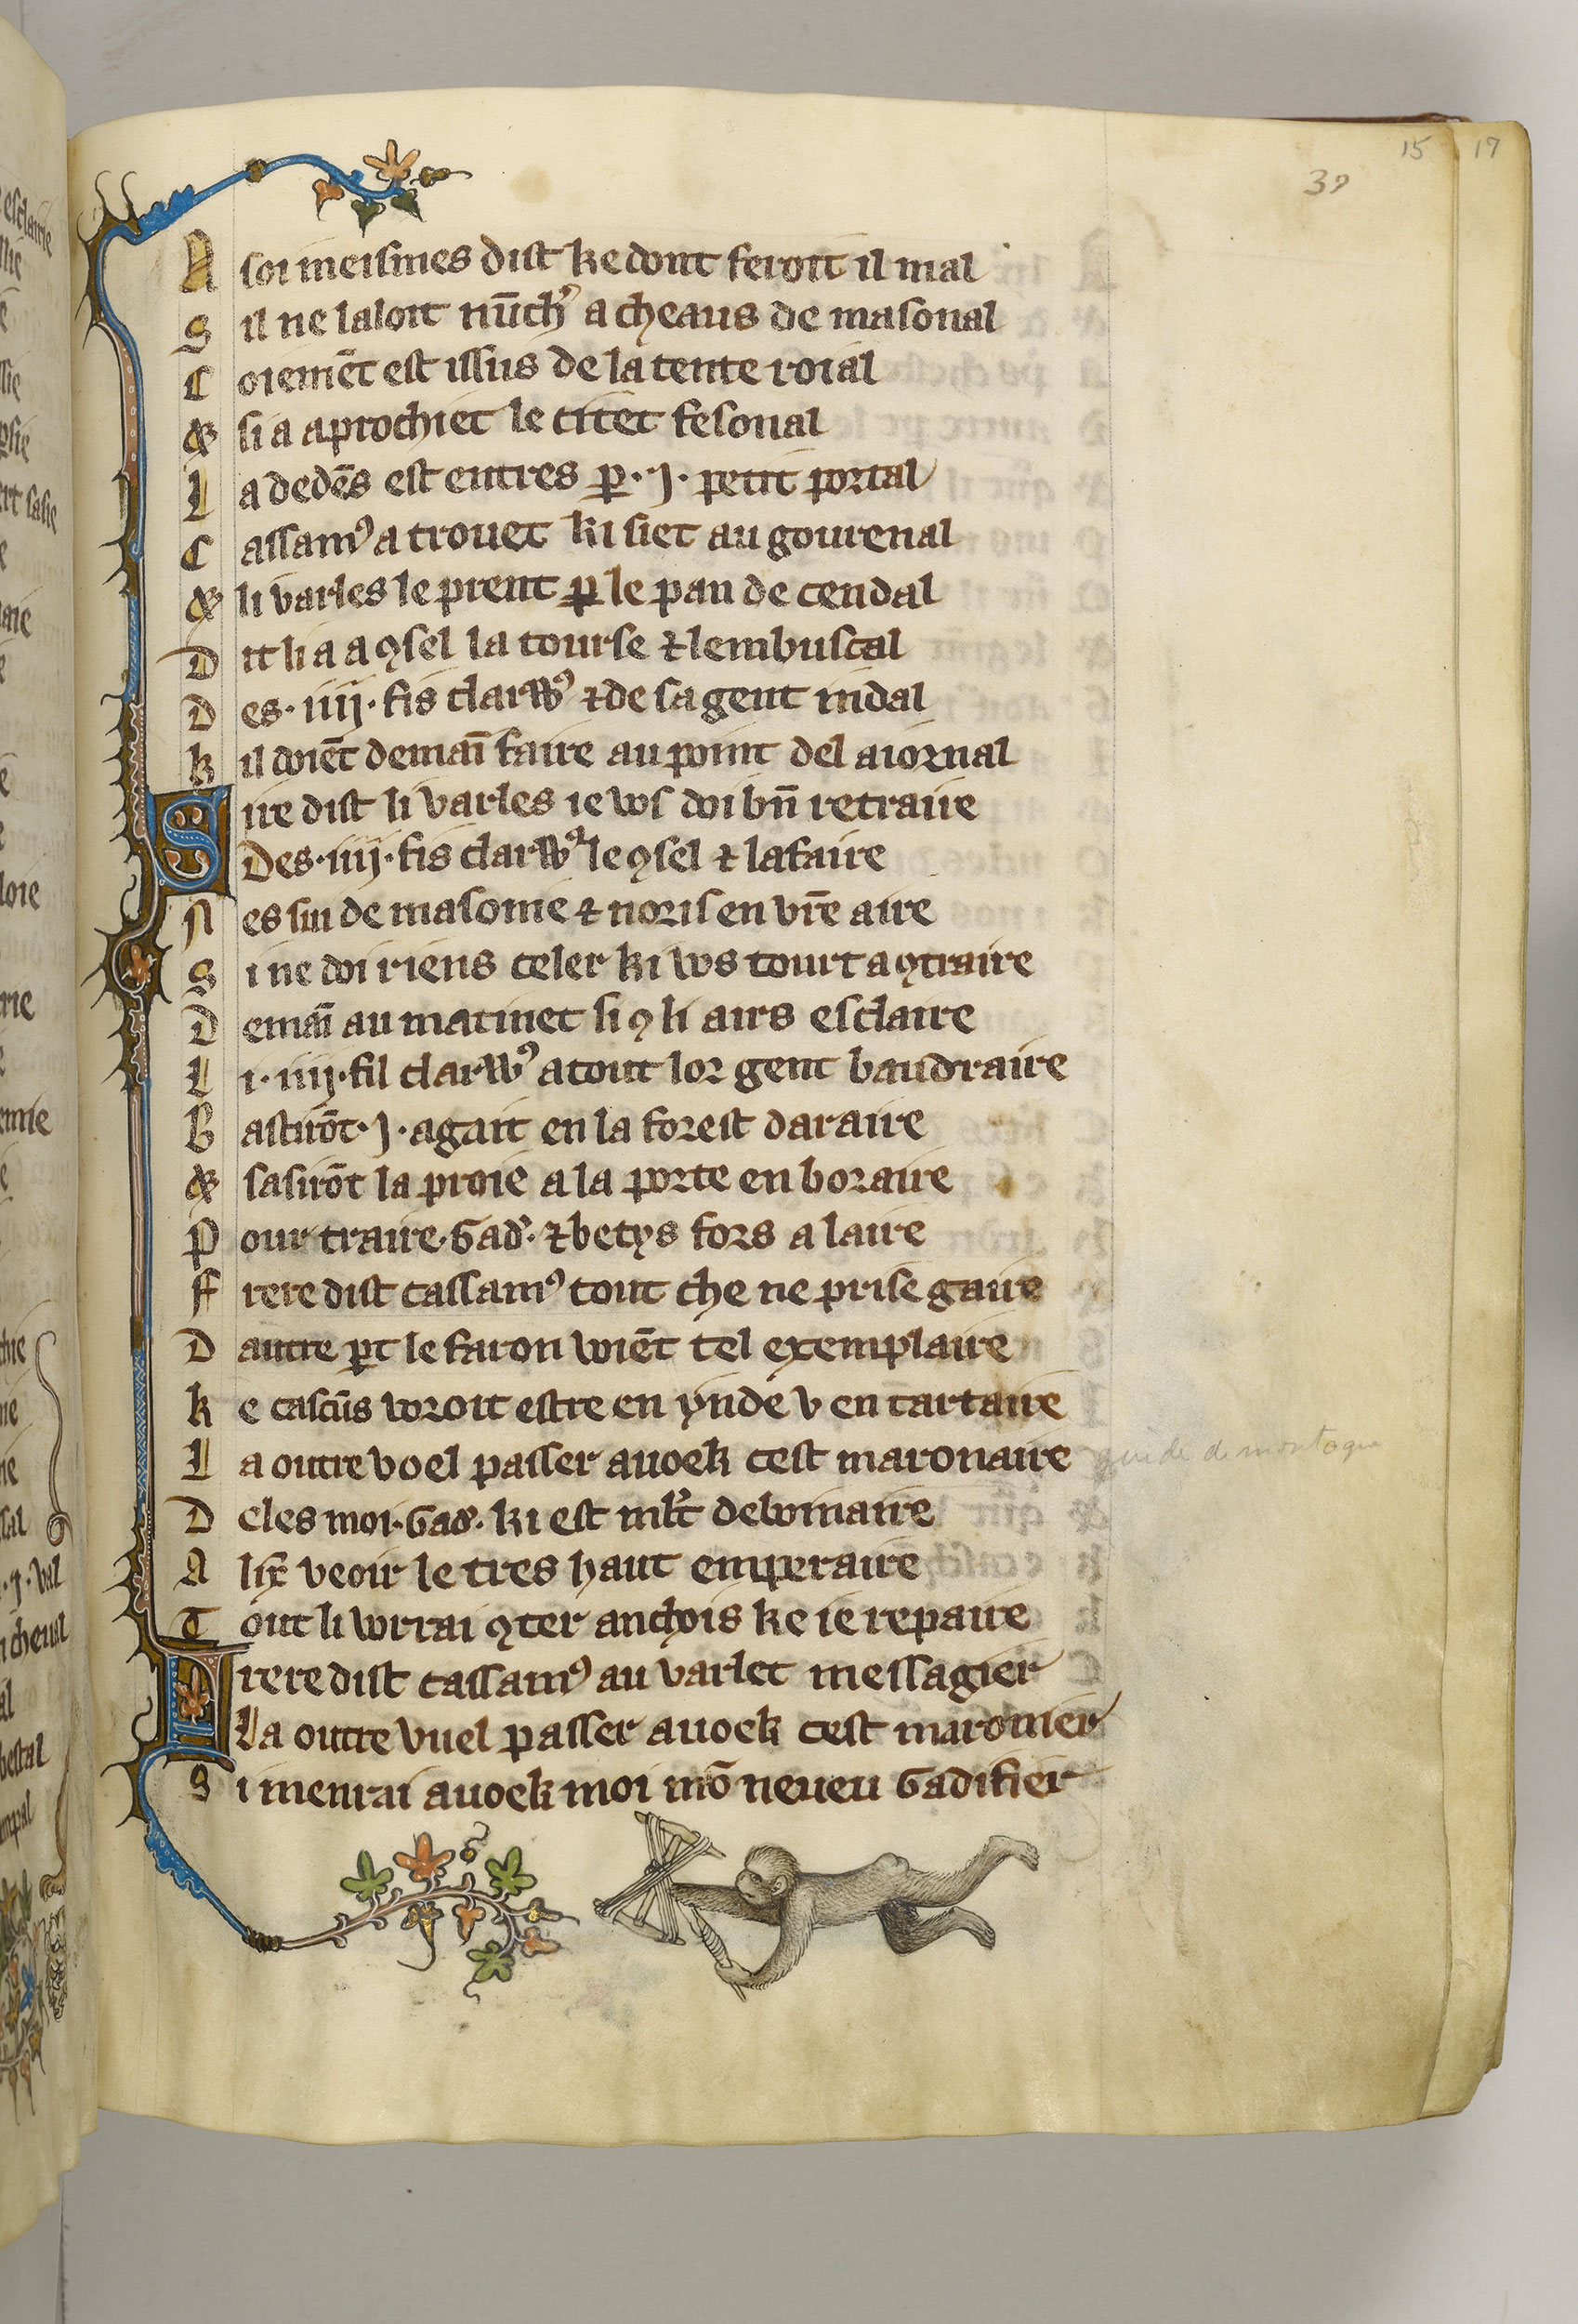 15 17
37
A soi meismes dist ke dont feroit il mal
S il ne laloit nūch᾽ a cheaus de masonal
C oiemēt est issus de la tente roial
& si a aprochiet le citet fesonal
L a dedēs est entres ꝑ ·j· petit portal
C assamꝰ a trouet ki siet au gourenal
& li varles le prent ꝑ le pan de cendal
D it li a a ꝯsel la tourse ⁊ lembuscal
D es ·iiij· fis clarwꝰ ⁊ de sa gent indal
k il doiēt demaī faire au point del aiornal
S ire dist li varles ie ws doi bn̄ retraire
Des ·iiij· fis clarwꝰ le ꝯsel ⁊ lafaire
N es sui de masonie ⁊ noris en vr̄e aire
S i ne doi riens celer ki ws tourt a ꝯtraire
D emaī au matinet si ꝯ li airs esclaire
L i ·iiij· fil clarwꝰ a tout lor gent baudraire
B astirōt ·j· agait en la forest daraire
& sasirōt la proie a la porte en boraire
P our traire ·Gad᾽· ⁊ betys fors a laire
F rere dist cassamꝰ tout che ne prise gaire
D autre ꝑt le faron voiēt tel exemplaire
k e cascūs voroit estre en ynde v en tartaire
L a outre voel passer auoek cest maronaire
D eles moi ·Gad᾽· ki est ml᾽t deboinaire
A lix᾽ veoir le tres haut emperaire
T out li worrai ꝯter anchois ke ie repaire
F rere dist cassamꝰ au varlet messagier
La outre vuel passer auoek cest maronier
S i menrai auoek moi mō neueu Gadifier